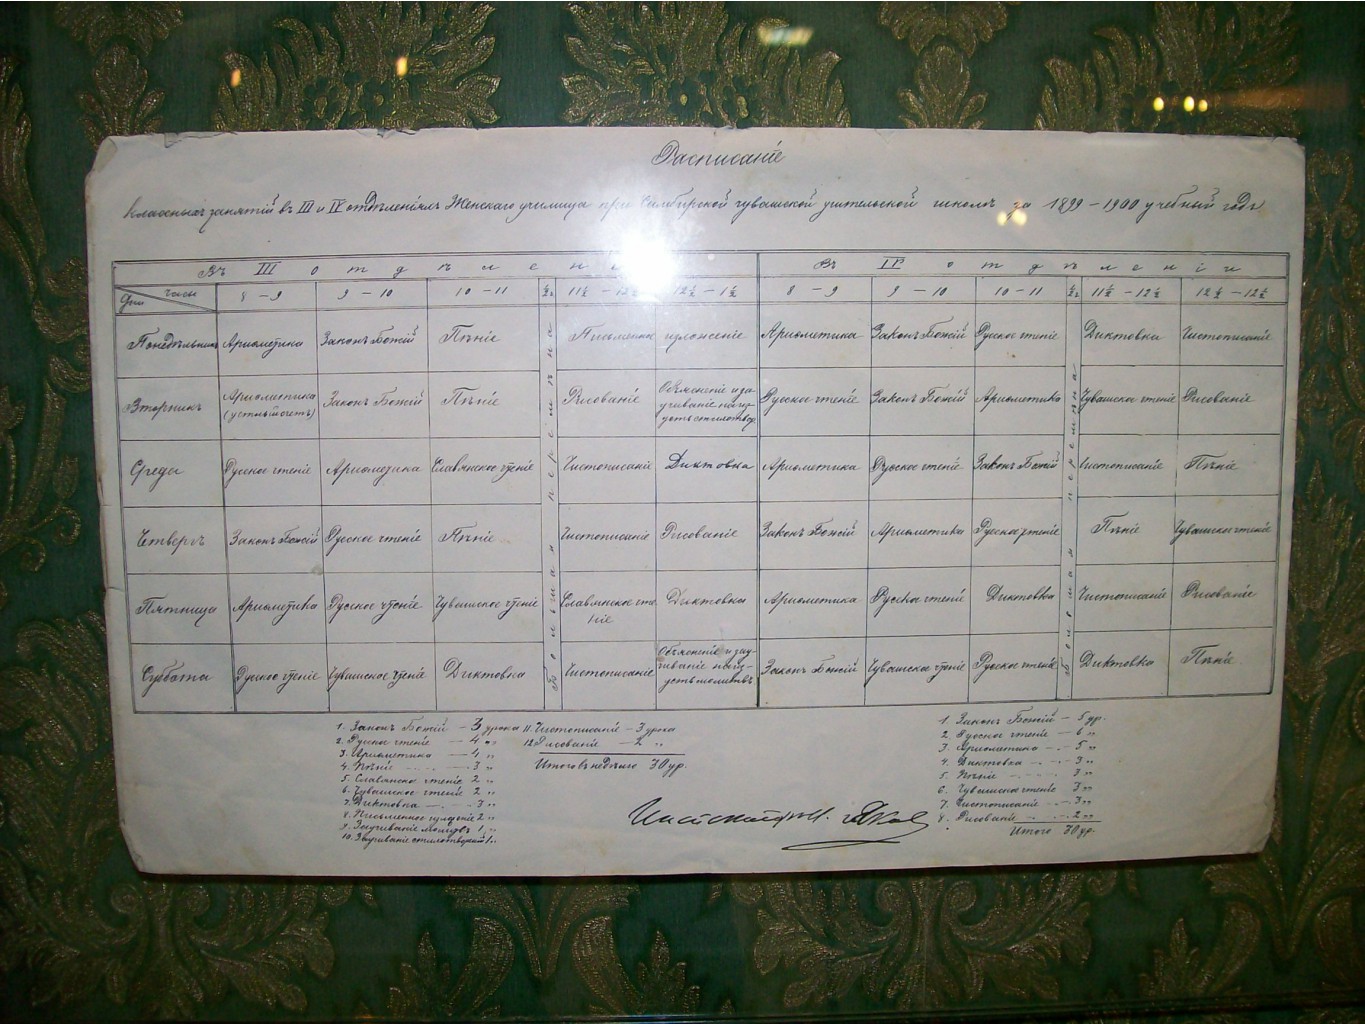 Расписаніе
классныхъ занятій въ III и IV отдѣленіяхъ Женскаго училища при Симбирской чувашской учительской школѣ за 1899-1900 учебный годъ
Въ III отдѣлені
Въ IV отдѣленіи
Дни Часы 8-9 9-10 10-11 ½ч 11½-12½ 12½-1½ 8-9 9-10 10-11 ½ч 11½-12½ 12½-12½
Понедѣльникъ Ариѳметика Законъ Божій Пѣніе Письменное изложеніе Ариѳметика Законъ Божій Русское чтеніе Диктовка Чистописаніе
Вторникъ Ариѳметика (устный счетъ) Законъ Божій Пѣніе Рисованіе Объясненіе и заучиваніе наизусть стихотвор Русское чтеніе Законъ Божій Ариѳметика Чувашское чтеніе Рисованіе
Среда Русское чтеніе Ариѳметика Славянское чтеніе Чистописаніе Диктовка Ариѳметика Русское чтеніе Законъ Божій Чистописаніе Пѣніе
Четвергъ Законъ Божій Русское чтеніе Пѣніе Чистописаніе Рисованіе Законъ Божій Ариѳметика Русское чтеніе Пѣніе Чувашское чтеніе
Пятница Ариѳметика Русское чтеніе Чувашское чтеніе Славянское чтеніе Диктовка Ариѳметика Русское чтеніе Диктовка Чистописаніе Рисованіе
Суббота Русское чтеніе Чувашское чтеніе Диктовка Чистописаніе Объясненіе и заучиваніе наизусть молитвъ Законъ Божій Чувашское чтеніе Русское чтеніе Диктовка Пѣніе
Большая перемѣна
Большая перемѣна
1. Законъ Божій - 3 урока
2. Русское чтеніе - 4 "
3. Ариѳметика - 4 "
4. Пѣніе - 3 "
5. Славянское чтеніе 2 "
6. Чувашское чтеніе 2 "
7. Диктовка - 3 "
8. Письменное изложеніе 2 "
9. Заучиваніе молитвъ 1 "
10. Заучиваніе стихотвореній 1 "
11. Чистописаніе - 3 урока
12. Рисованіе - 2 "
Итого въ недѣлю 30 ур.
1. Законъ Божій - 5 ур.
2. Русское чтеніе - 6 "
3. Ариѳметика - 5 "
4. Диктовка - 3 "
5. Пѣніе - 3 "
6. Чувашское чтеніе 3 "
7. Чистописаніе - 3 "
8. Рисованіе - 2 "
Итого 30 ур.
Инспекторъ И. Яковлевъ